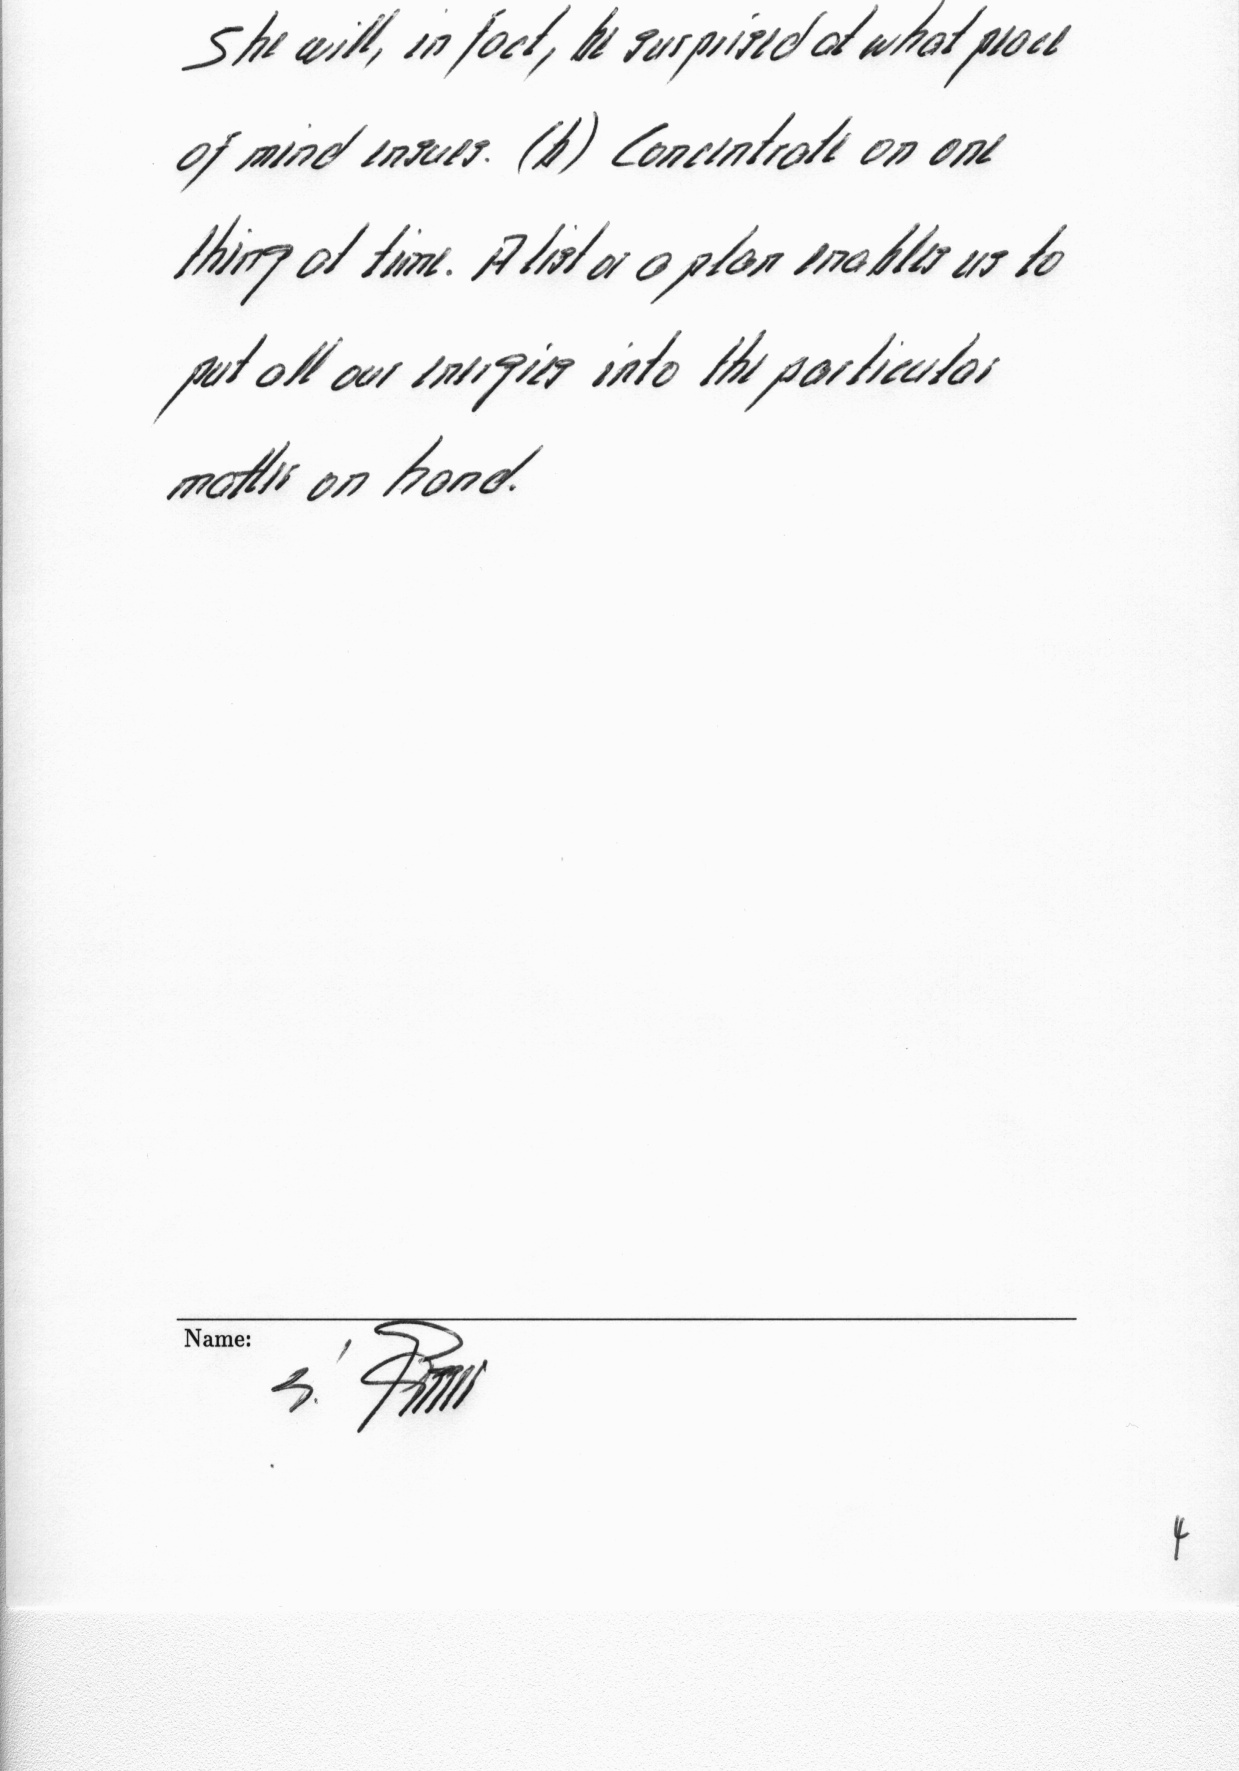 She will, in fact, be surprised at what peace
of mind ensues. (h) Concentrate on one
thing at time. A list or a plan enables us to
put all our energies into the particular
matter on hand.
Name:
4